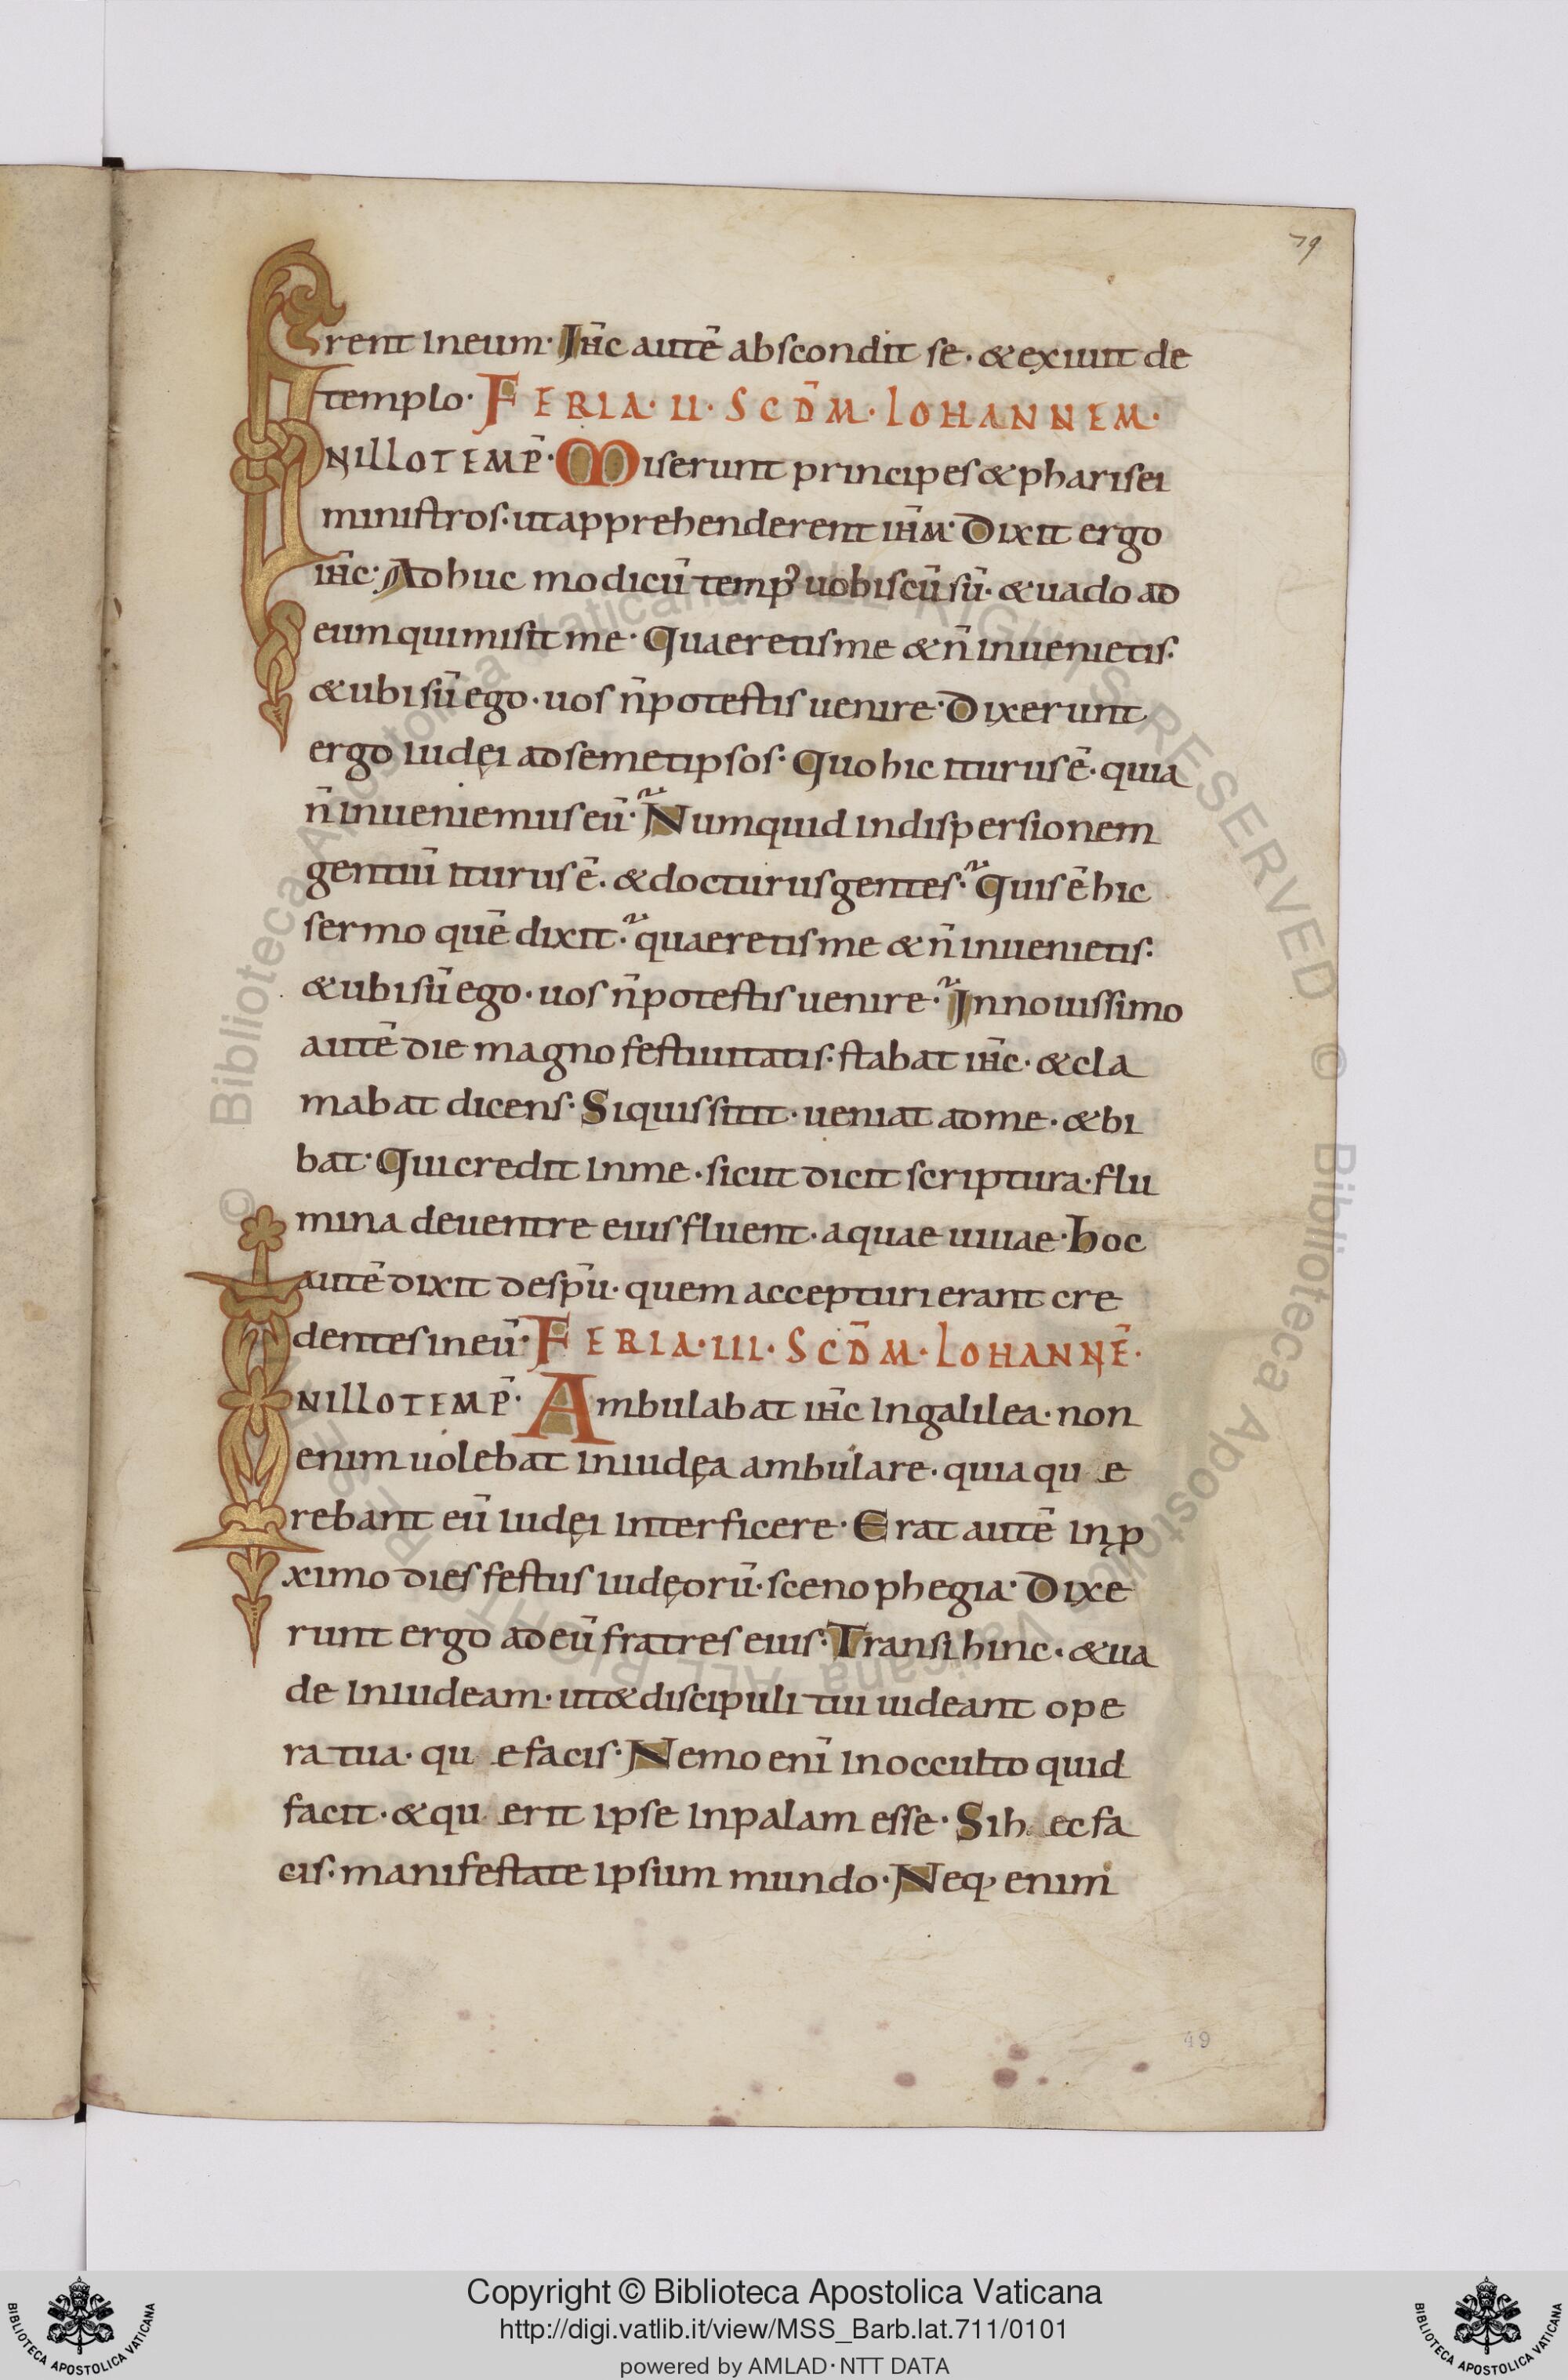 79
rent ineum· Ih̄c autē abscondit se· &exiuit de
templo· FERIA· II· SCD̄M· IOHANNEM·
INILLOTEMP̄· Miserunt principes&pharisei
ministros· utapprehenderent ih̄m· Dixit ergo
ih̄c· Adhuc modicū temp᾽ uobiscū sū· &uado ad
eum quimisit me· Quaeretisme &n̄ inuenietis·
&ubi sū ego· uos n̄ potestis uenire· Dixerunt
ergo iudęi adsemetipsos· Quo hic iturus ē· quia
n̄ inueniemus eū· Numquid indispersionem
gentiū iturus ē· &docturus gentes· Quis ē hic
sermo quē dixit· quaeretisme &n̄ inuenietis·
&ubi sū ego· uos n̄ potestis uenire· Innouissimo
autē die magno festiuitatis· stabat ih̄c· &cla
mabat dicens· Siquis sitit· ueniat adme· &bi
bat· Qui credit inme· sicut dicit scriptura· flu
mina deuentre eius fluent· aquae uiuae· hoc
autē dixit desp̄u· quem accepturi erant cre
dentes ineū· FERIA· III· SCD̄M· IOHANNĒ·
INILLOTEMP̄· Ambulabat ih̄c ingalilea· non
enim uolebat iniudęa ambulare· quia qu e
rebant eū iudęi interficere· Erat autē inꝓ
ximo dies festus iudęorū· scenophegia· Dixe
runt ergo adeū fratres eius· Transi hinc· &ua
de iniudeam· ut&discipuli tui uideant ope
ra tua· qu e facis· Nemo enī inocculto quid
facit· &qu erit ipse inpalam esse· Si h ec fa
cis· manifestate ipsum mundo· Neq· enim
49
© Biblioteca Apostolica Vaticana ALL RIGHTS RESERVED © Biblioteca Apostolica Vaticana ALL RIGHTS RESERVED
Copyright © Biblioteca Apostolica Vaticana
http://digi.vatlib.it/view/MSS_Barb.lat.711/0101
powered by AMLAD·NTT DATA
BIBLIOTECA APOSTOLICA VATICANA
BIBLIOTECA APOSTOLICA VATICANA